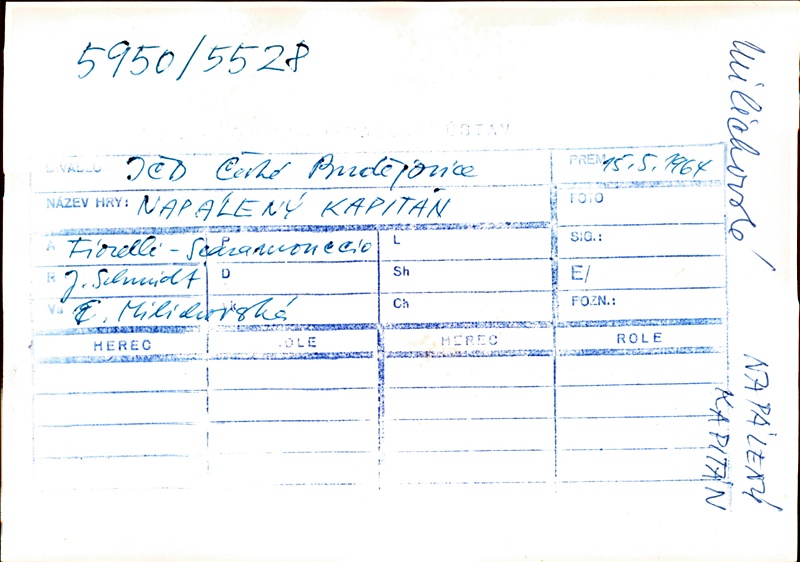 5950/5528
ÚSTAV
DIVADLO JČD České Budějovice PREM. 15.5.1964
NÁZEV HRY: NAPÁLENÝ KAPITÁN FOTO
A Fiorelli - Scaramonccio P L SIG.:
R J. Schmidt D Sh E/
E. Milichovská Ch POZN.:
HEREC ROLE HEREC ROLE
NAPÁLENÝ
KAPITÁN